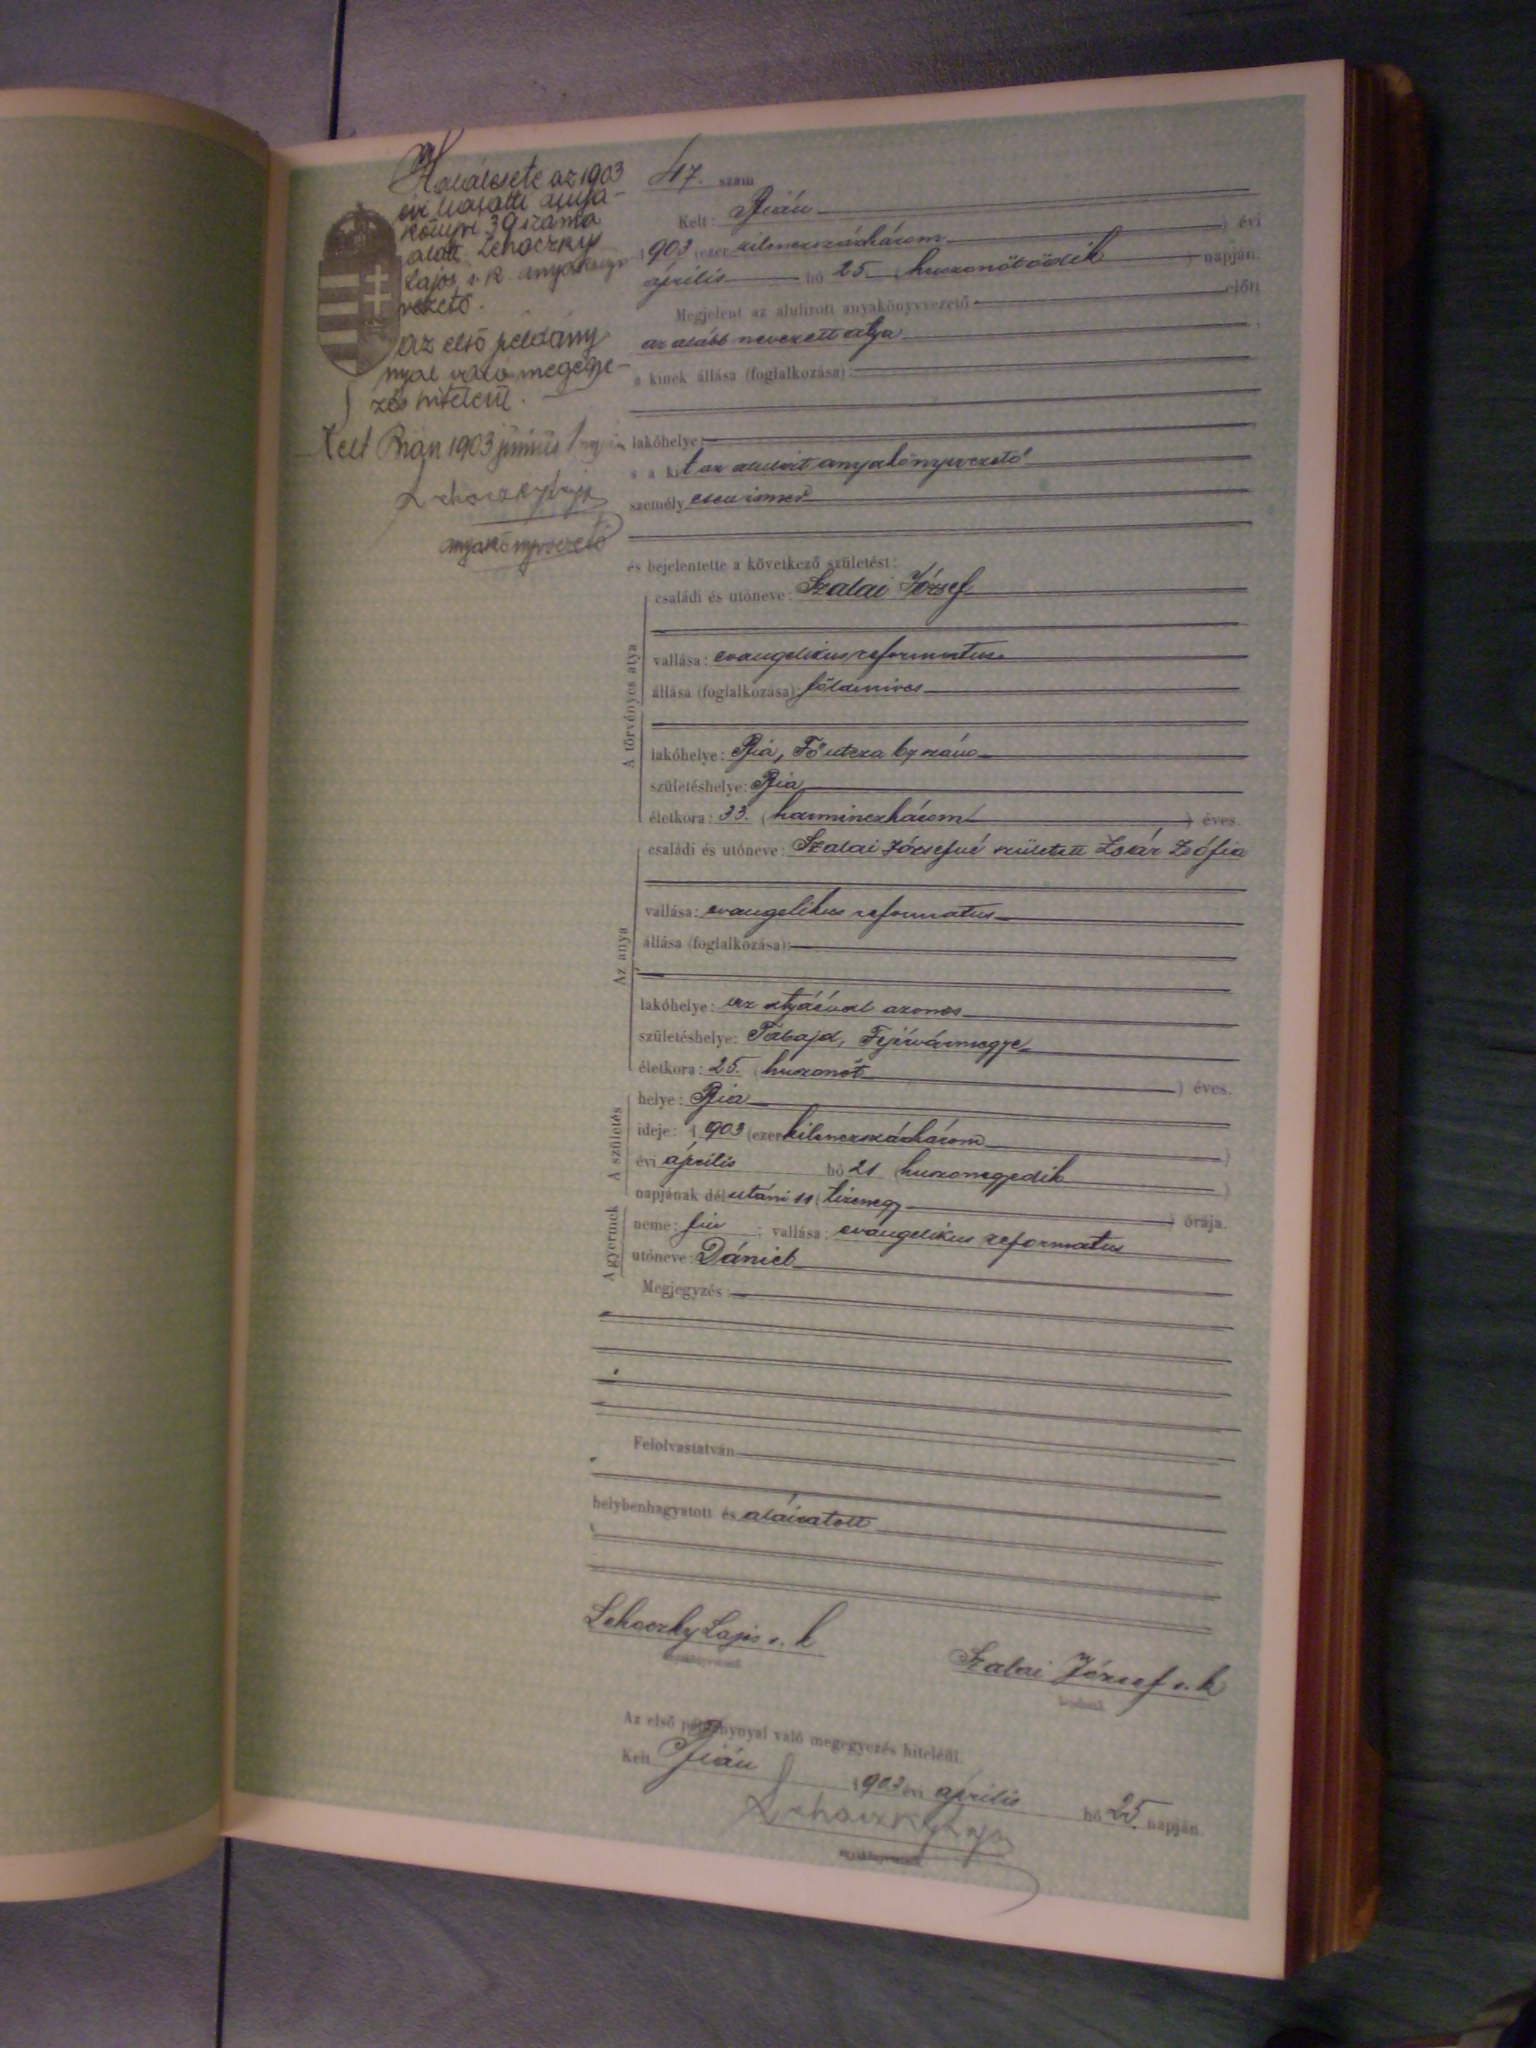 Halálesete az 1903
évi halotti anya-
könyvi 39 száma
alatt. Lehoczky
Lajos s. k. anyakönyv
vezető.
az első példány
nyal való megegye-
zés hiteléül.
Kelt Bián 1903 június 1
Lehoczky Lajos
anyakönyvvezető
47. szám
Kelt: Bián
1903 (ezer kilenczszázhárom) évi
április hó 25 (huszonötödik) napján.
Megjelent az alulirott anyakönyvvezető előtt
az alább nevezett atya
a kinek állása (foglalkozása):
lakóhelye:
s a kit az alulirt anyakönyvvezető
személyesen ismer
és bejelentette a következő születést:
A törvényes atya
családi és utóneve: Szalai József
vallása: evangelikus reformatus
állása (foglalkozása): földmíves
lakóhelye: Bia, Fő utcza szám
születéshelye: Bia
életkora: 33. (harminczhárom) éves.
Az anya
családi és utóneve: Szalai Józsefné született Zsár Zsófia
vallása: evangelikus reformatus
állása (foglalkozása):
lakóhelye: az atyáéval azonos
születéshelye: Tabajd, Fejérvármegye
életkora: 25. (huszonöt) éves.
A születés
helye: Bia
ideje: 1903 (ezer kilenczszázhárom)
évi április hó 21 (huszonegyedik)
napjának délutáni 11 (tizenegy) órája.
A gyermek
neme: fiu; vallása: evangelikus reformatus
utóneve: Dániel
Megjegyzés:
Felolvastatván
helybenhagyatott és aláiratott
Lehoczky Lajos s. k
anyakönyvvezető
Szalai József s. k
bejelentő
Az első példánynyal való megegyezés hiteléül.
Kelt Bián 1903 évi április hó 25. napján.
Lehoczky Lajos
anyakönyvvezető